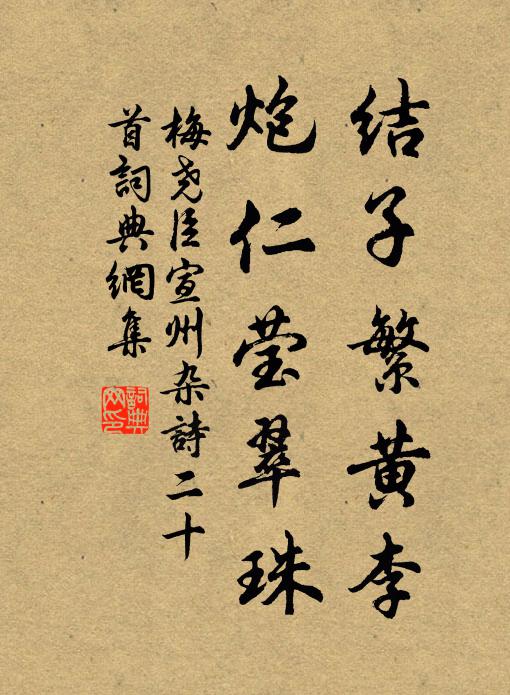 结子繁黄李
炮仁莹翠珠
梅尧臣宣州杂詩二十
首詞典網集
詞典
网印